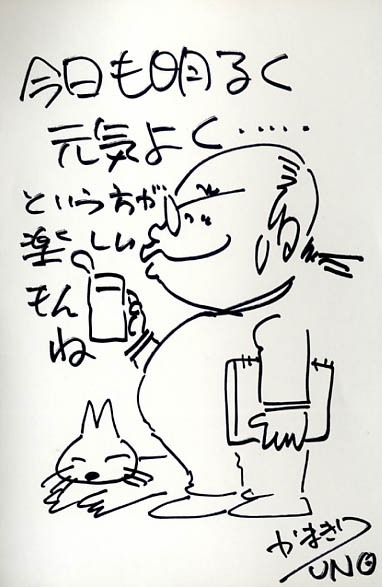 今日も明るく
元気よく・・・・・
という方が
楽しい
もんね
かまきり
UNO